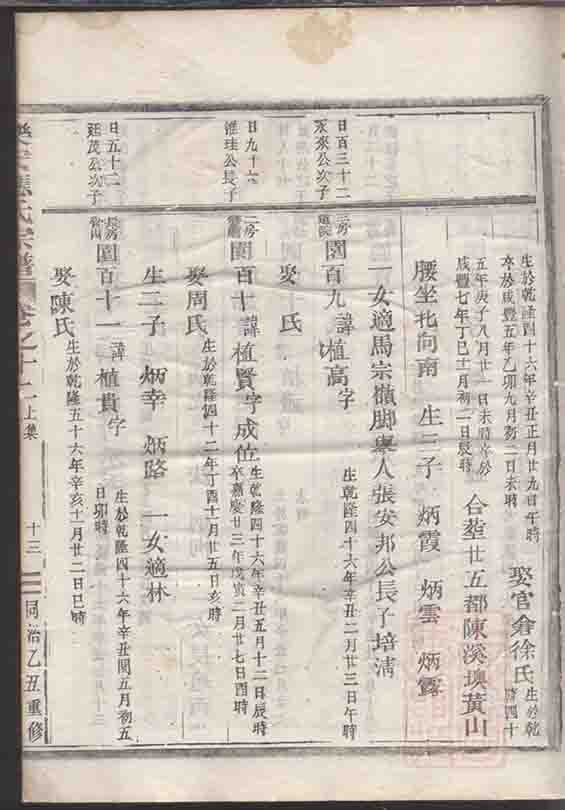 生於乾隆四十六年辛丑正月廿九日午時
卒於咸豐五年乙卯九月初二日未時
娶官倉徐氏
生於乾
隆四十
五年庚子八月廿一日未時卒於
咸豐七年丁巳十月初二日辰時
合塟廿五都陳溪墺黃山
腰坐北向南 生三子 炳霞 炳雲 炳露
一女適馬宗嶺脚舉人張安邦公長子培淸
日百三十二
永來公次子
三房
園百九 諱植高 字
生乾隆四十六年辛丑二月廿三日午時
娶 氏
日九十六
維珪公長子
二房
園百十 諱植賢 字成位
生乾隆四十六年辛丑五月十二日辰時
卒嘉慶廿三年戊寅二月廿七日酉時
娶周氏
生於乾隆四十二年丁酉十月廿五日亥時
生二子 炳幸 炳路 一女適林
日五十二
廷茂公次子
長房
園百十一 諱植貴 字
生於乾隆四十六年辛丑閏五月初五
日卯時
娶陳氏
生於乾隆五十六年辛亥十一月廿二日巳時
氏宗譜 卷之十一上集 十三 同治乙丑重修